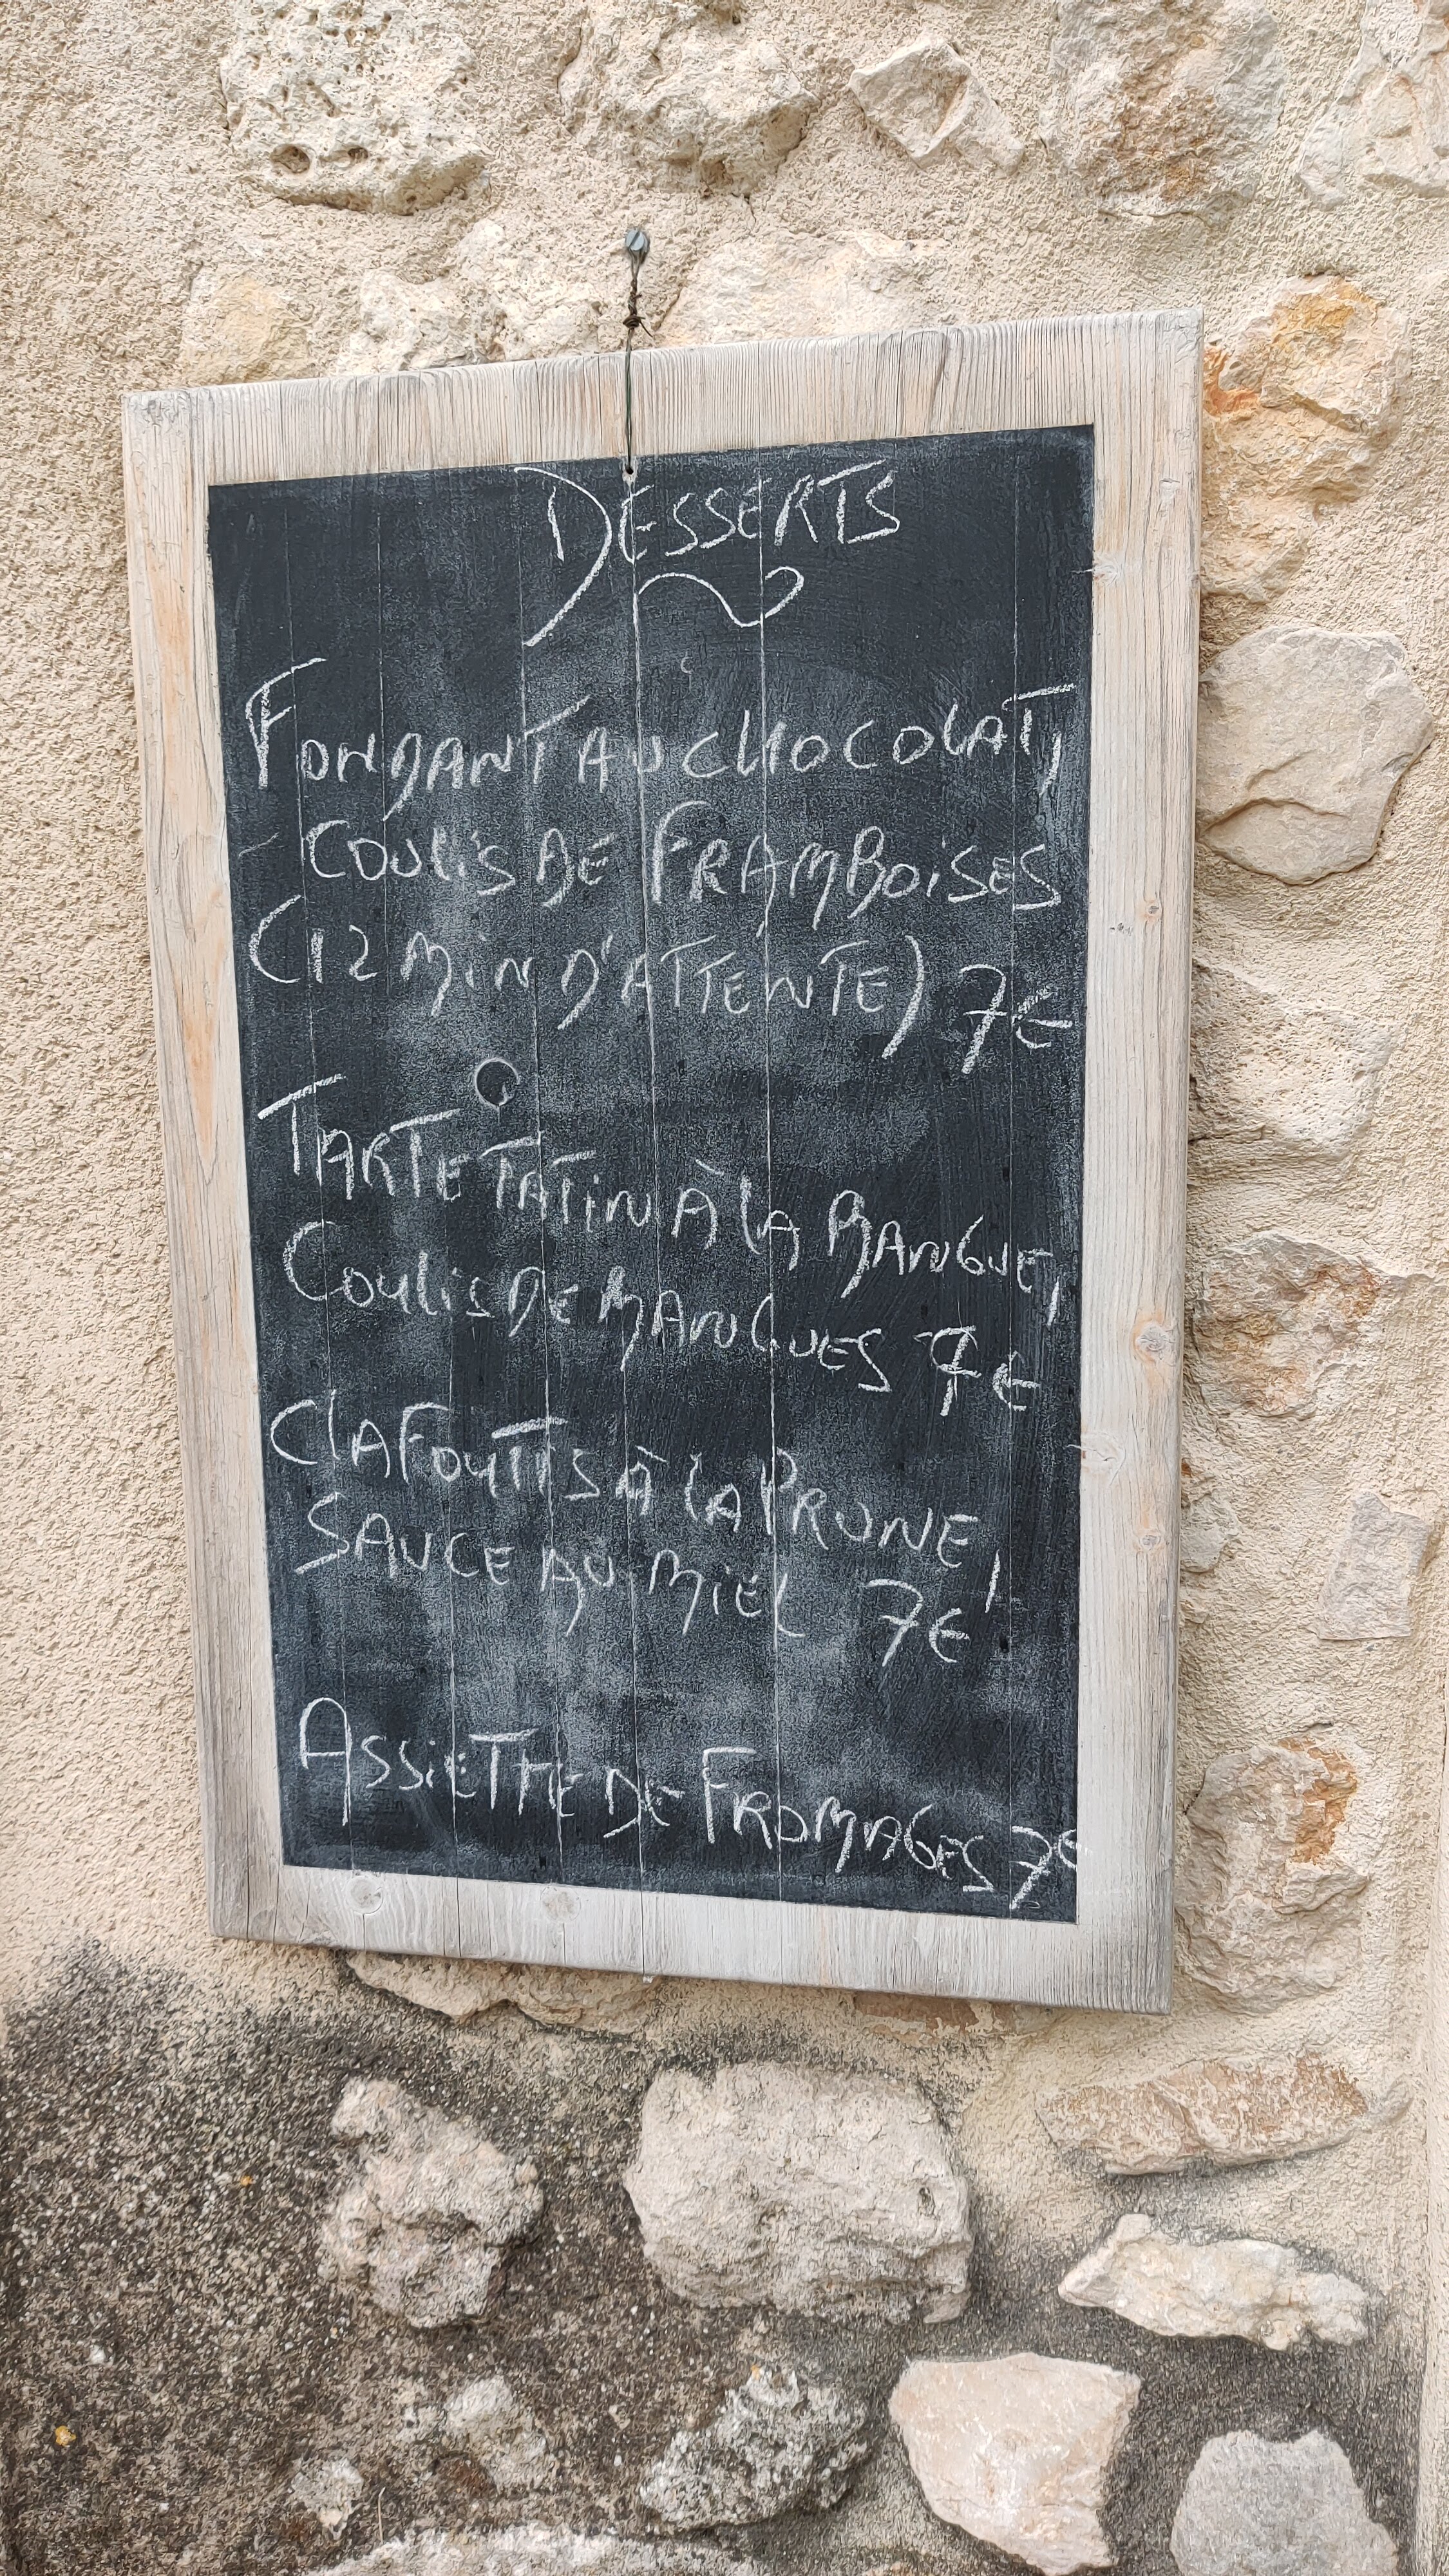 DESSERTS
FONDANT AU CHOCOLAT,
COULIS DE FRAMBOISES
(12 MIN D'ATTENTE) 7€
TARTE TATIN À LA MANGUE,
COULIS DE MANGUES 7€
CLAFOUTIS À LA PRUNE,
SAUCE AU MIEL 7€
ASSIETTE DE FROMAGES 7€